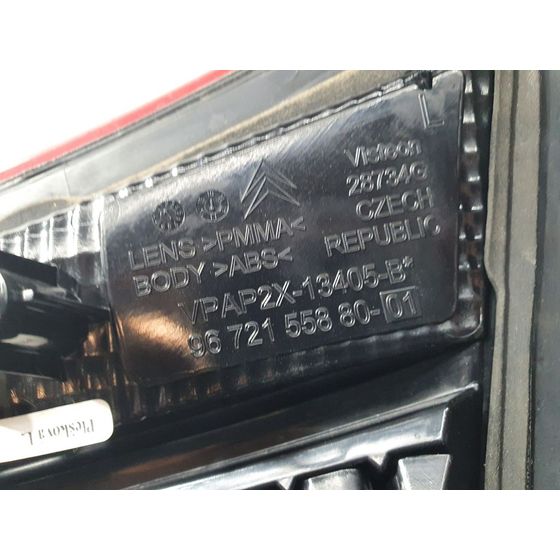 L
Visteon
28734G
CZECH
REPUBLIC
LENS >PMMA<
BODY >ABS<
VPAP2X-13405-B*
96 721 558 80-01
Plešková L